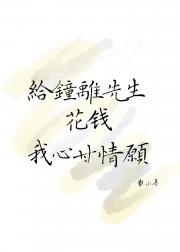 給鐘離先生
花钱
我心甘情願